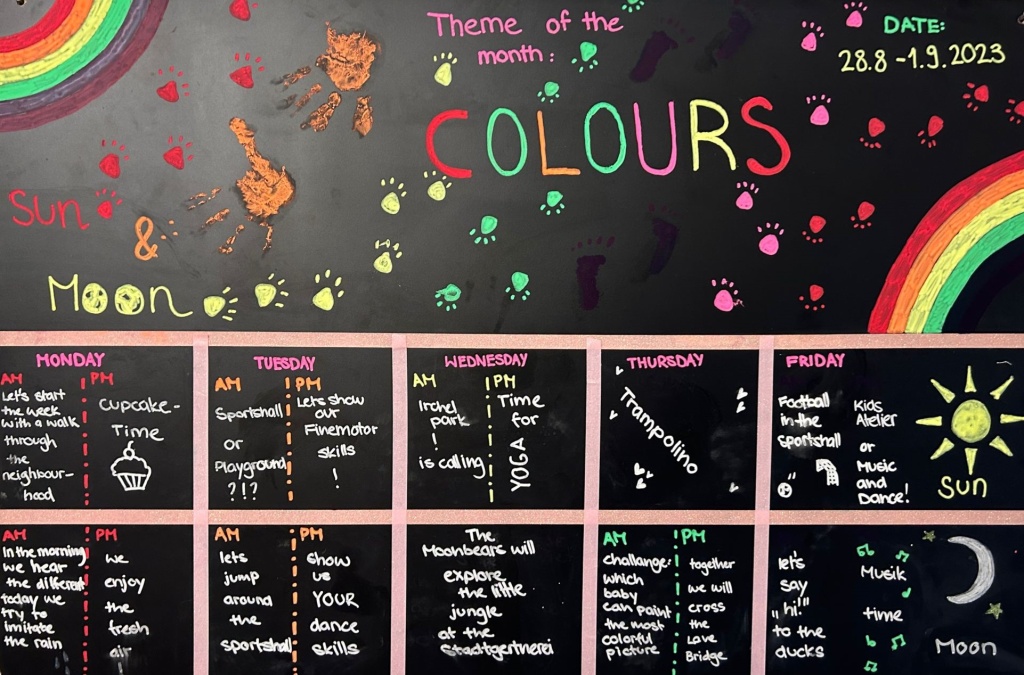 Theme of the
month:
DATE:
28.8 - 1.9.2023
COLOURS
Sun
&
Moon
MONDAY
AM
Let's start
the week
with a walk
through
the
neighbour-
hood
PM
cupcake-
Time
TUESDAY
AM
Sportshall
or
Playground
?!?
PM
Lets show
our
Finemotor
skills
!
WEDNESDAY
AM
Irchel
park
!
is calling
PM
Time
for
YOGA
THURSDAY
Trampolino
FRIDAY
Football
in the
sportshall
Kids
Atelier
or
Music
and
Dance!
Sun
AM
In the morning
we hear
the different
today we
try to
imitate
the rain
PM
we
enjoy
the
fresh
air
AM
lets
jump
around
the
sportshall
PM
show
us
YOUR
dance
skills
The
Moonbears will
explore
the little
jungle
at the
Stadtgertnerei
AM
challange:
which
baby
can paint
the most
colorful
picture
PM
together
we will
cross
the
Lave
Bridge
let's
say
"hi"
to the
ducks
Musik
time
Moon